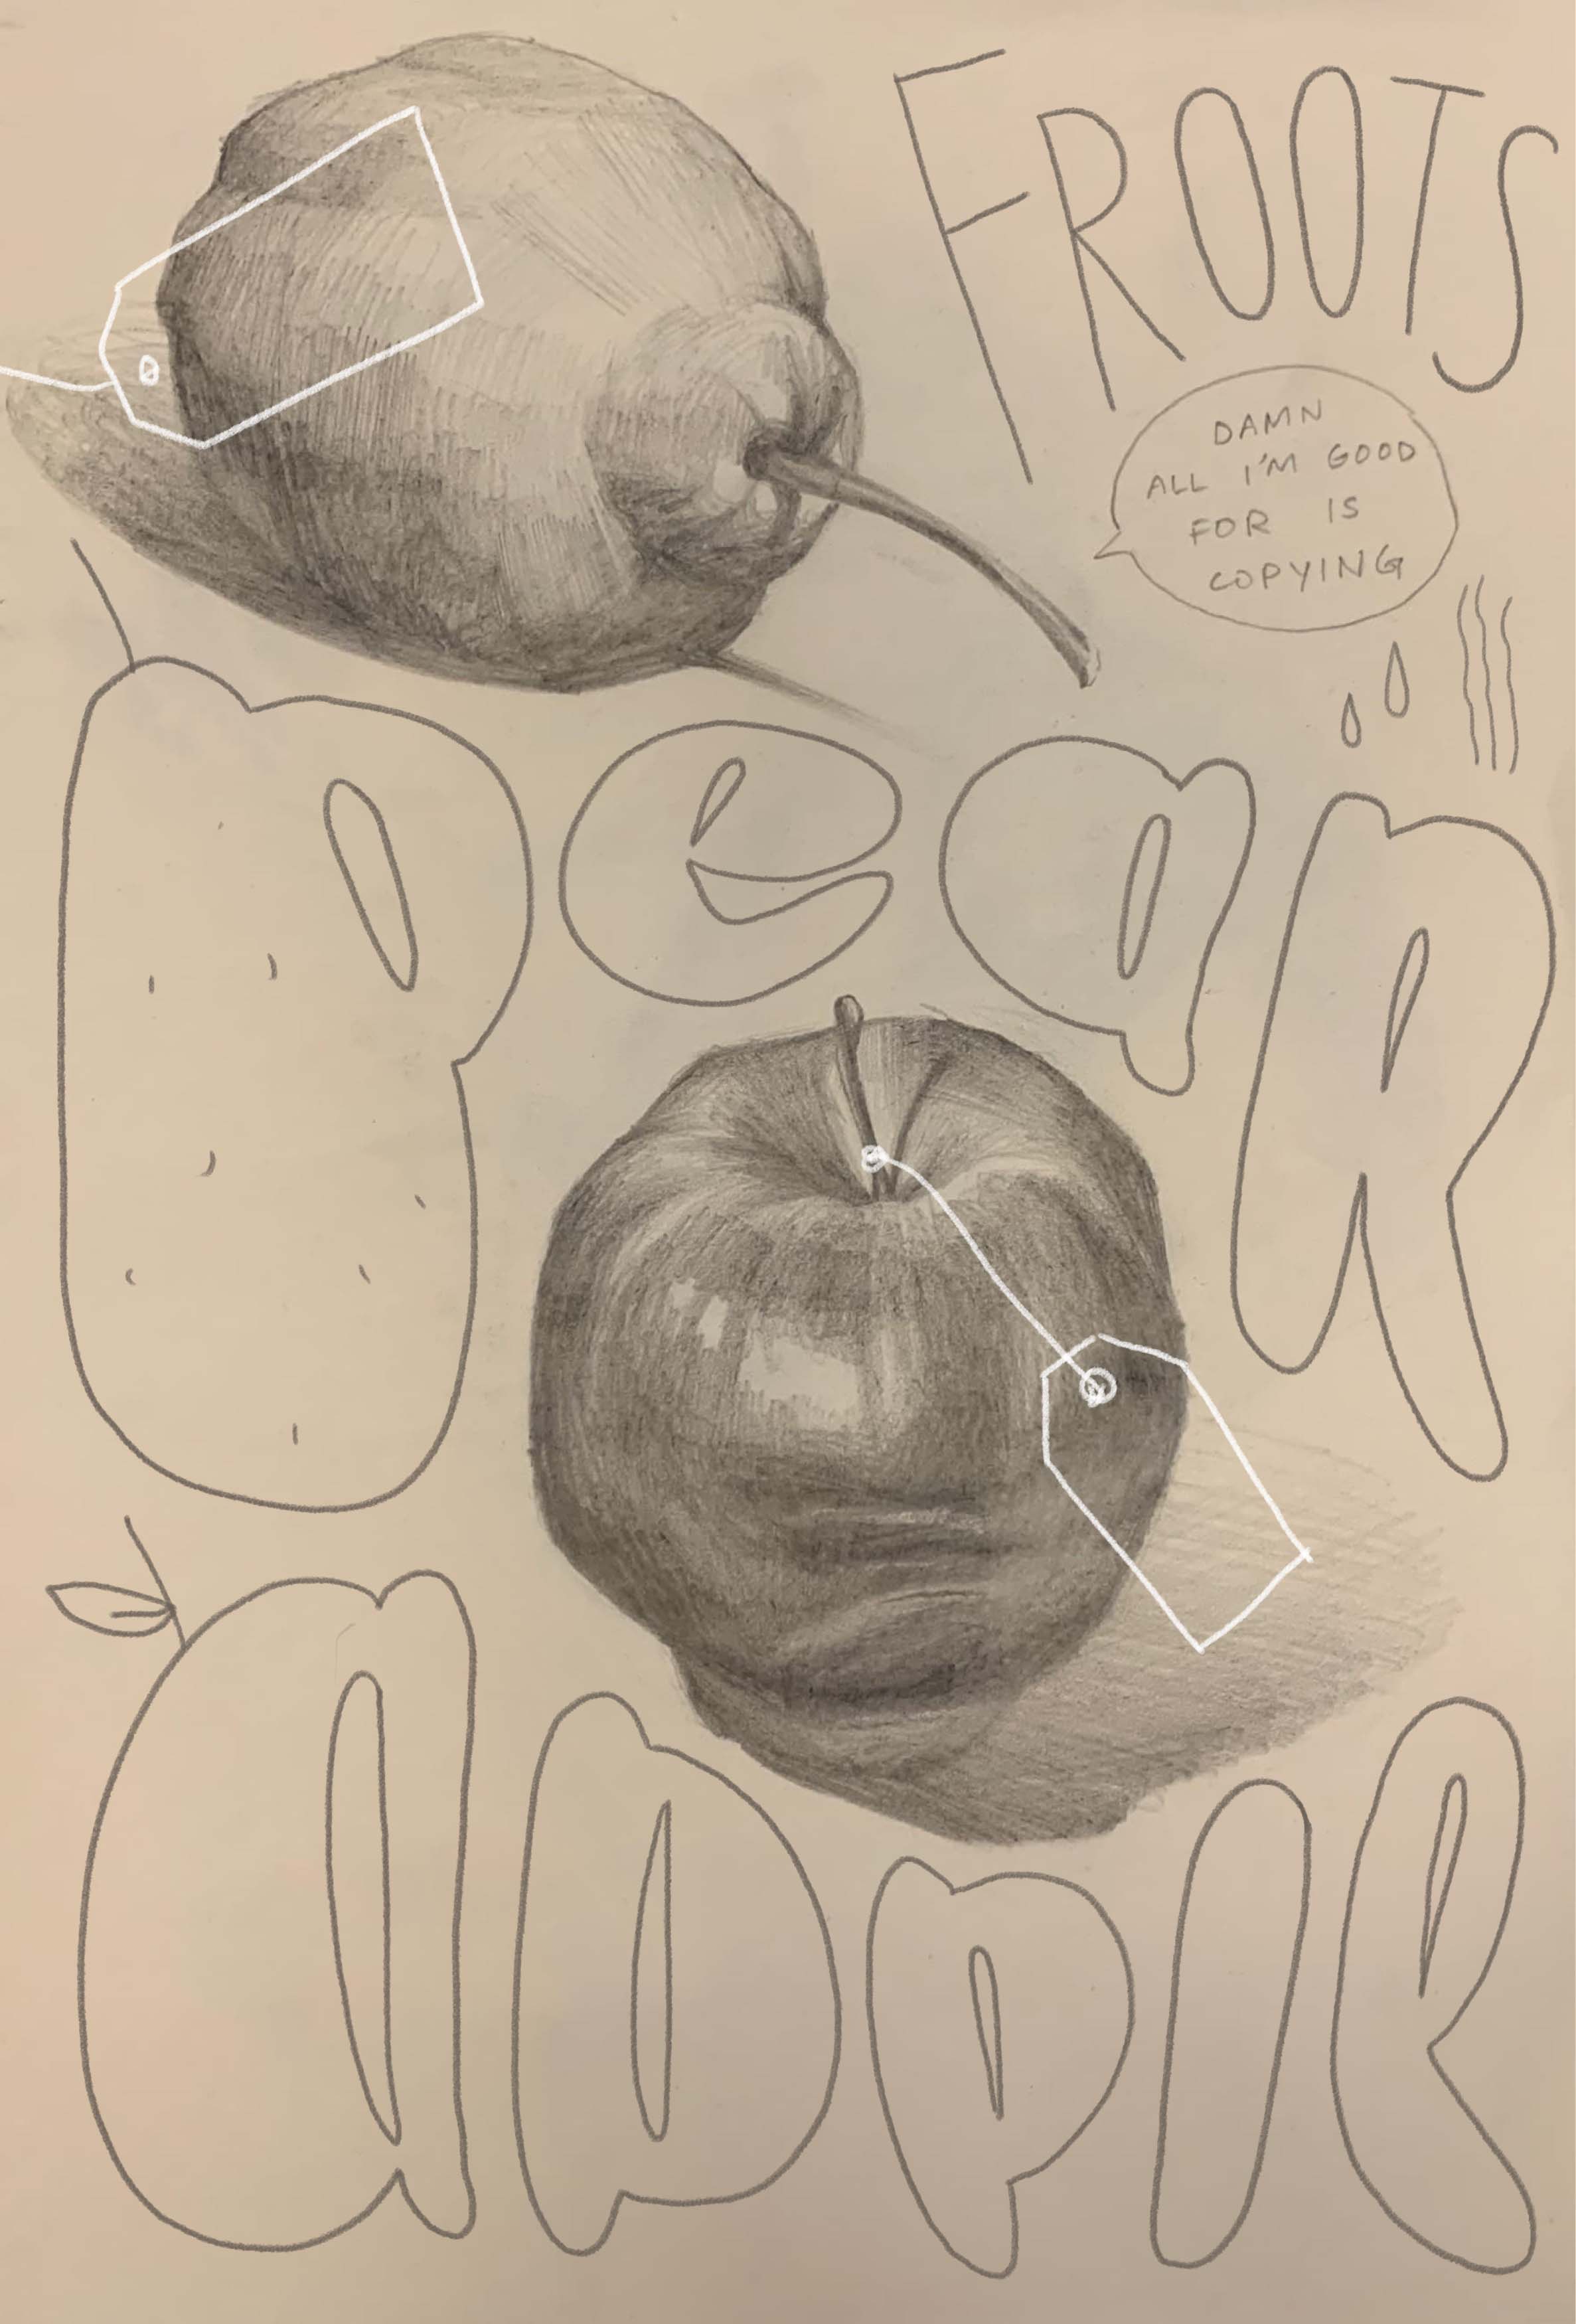 FROOTS
DAMN
ALL I'M GOOD
FOR IS
COPYING
PeaR
apple